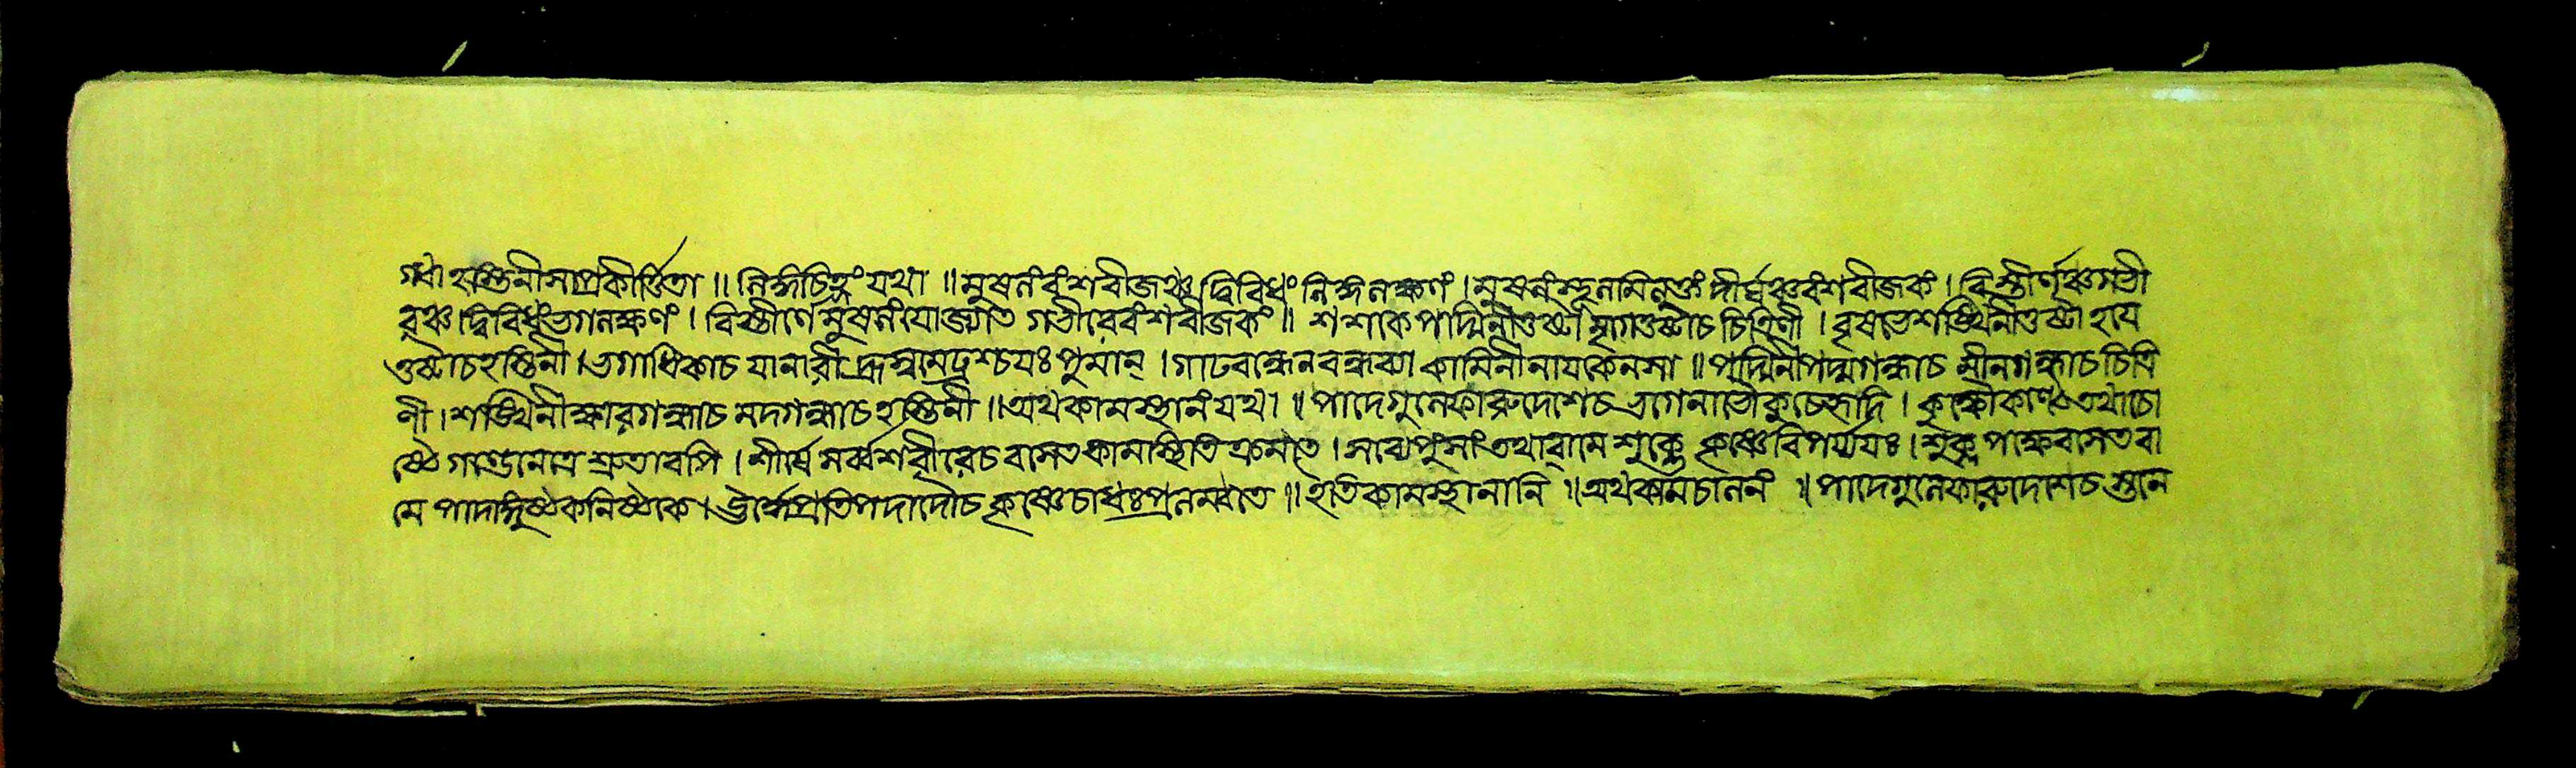 গন্ধা হস্তিনীসাপ্রকীর্ত্তিতা ॥ লিঙ্গচিহ্নং যথা ॥ মুষলং বংশবীজঞ্চ দ্বিবিধং লিঙ্গলক্ষণং । মুষলং স্থূলমিত্যুক্তং দীর্ঘঞ্চবংশবীজকং । বিস্তীর্ণঞ্চগভী
রঞ্চ দ্বিবিধংভগলক্ষণং । বিস্তীর্ণে মুষলংযোজ্যতে গভীরেবংশবীজকং ॥ শশকে পদ্মিনীতুষ্টা মৃগেতুষ্টাচ চিত্রিণী । বৃষভেশঙ্খিনীতুষ্টা হয়ে
তুষ্টাচহস্তিনী । ভগাধিকাচ যানারী হ্রস্বমেঢ্রশ্চযঃ পুমান্ । গাঢবন্ধেনবন্ধব্যা কামিনীনায়কেনসা ॥ পদ্মিনীপদ্মগন্ধাচ মীনগন্ধাচ চিত্রি
ণী । শঙ্খিনীক্ষারগন্ধাচ মদগন্ধাচ হস্তিনী ॥ অথকামস্থানংযথা ॥ পাদেগুল্ফেঊরুদেশেচ ভগেনাভৌকুচেহৃদি । কক্ষৌকণ্ঠেতথাচো
ষ্ঠে গণ্ডেনেত্রে শ্রুতাবপি । শীর্ষে সর্ব্বশরীরেচ বসেতকামস্থিতি ক্রমতে । সব্যেপুংসাং তথাবামে শুক্লে কৃষ্ণেবিপর্য্যয়ঃ । শুক্ল পক্ষেবসেতবা
মে পাদাঙ্গুষ্ঠেকনিষ্ঠকে । ঊর্দ্ধেপ্রতিপদাদৌচ কৃষ্ণেচাধঃপ্রলম্বতে ॥ ইতিকামস্থানানি ॥ অথকামচালনং ॥ পাদেগুল্ফেঊরুদেশেচ স্তনে